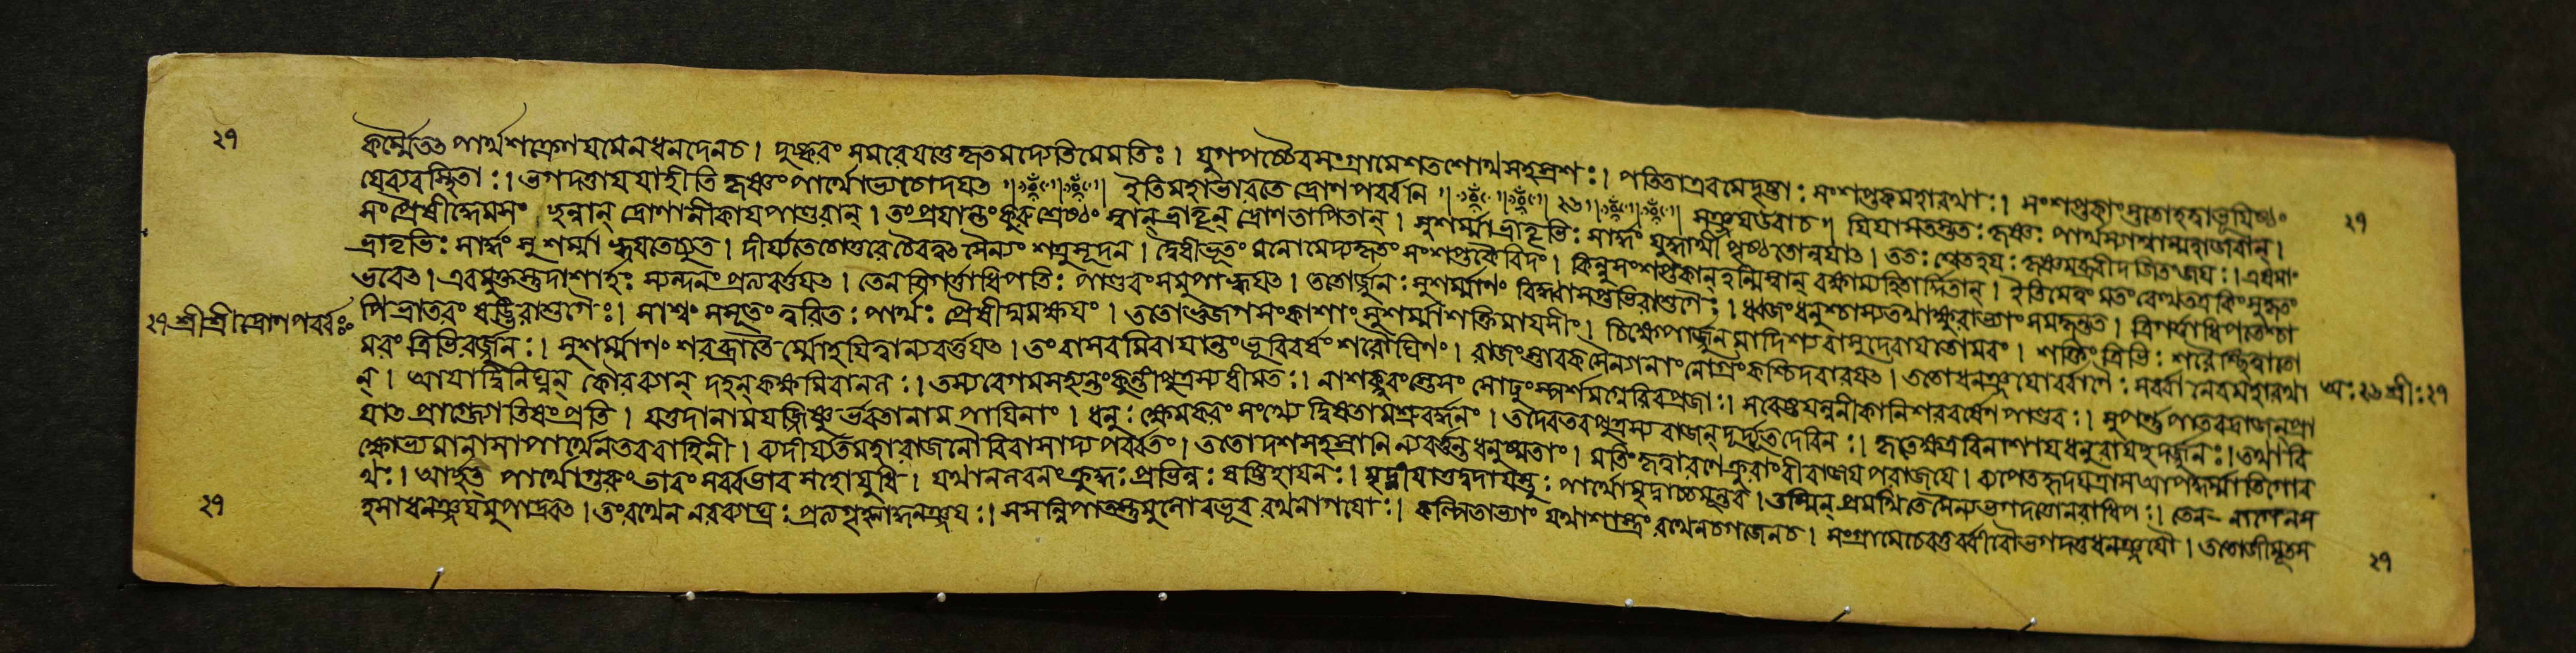 ২৭
কর্ম্মৈতৎ পার্থ শক্রেণ যমেন ধনদেন চ। দুষ্করং সমরে যত্তে কৃতমদ্যেতি মে মতিঃ। যুগপচ্চৈব সংগ্রামে শতশোথ সহস্রশঃ। পতিতা এব মে দৃষ্টাঃ সংশপ্তক মহারথাঃ। সংশপ্তকাংস্ততো হত্বা ভূয়িষ্ঠং
যে ব্যবস্থিতাঃ। ভগদত্তায় যাহীতি কৃষ্ণং পার্থোভ্যচোদয়ৎ ইতি মহাভারতে দ্রোণপর্ব্বনি ২৬ সঞ্জয় উবাচ॥ যিয়াসতস্ততঃ কৃষ্ণঃ পার্থস্যাশ্বান্মনোজবান্।
সংপ্রৈষীদ্ধেমসং ছন্নান্ দ্রোণানীকায় পাণ্ডুরান্। তং প্রয়ান্তং কুরুশ্রেষ্ঠং স্বান্ ভ্রাতৃন্ দ্রোণতাপিতান্। সুশর্ম্মা ভ্রাতৃভিঃ সার্দ্ধং যুদ্ধার্থী পৃষ্ঠতোন্বয়াৎ। ততঃ শ্বেতহয়ঃ কৃষ্ণমব্রবীদজিতং জয়ঃ। এষ মাং
ভ্রাতৃভিঃ সার্দ্ধং সুশর্ম্মা হ্বয়তেচ্যুত। দীর্য্যতে চোত্তরেণৈব সৈন্যং শত্রুসূদন। দ্বৈধীভূতং মনো মেদ্য কৃতং সংশপ্তকৈরিদং। কিন্নু সংশপ্তকান্ হন্মি স্বান্ রক্ষাম্যহিতার্দ্দিতান্। ইতি মে ত্বং মতং বেত্থ তত্র কিং সুকৃতং
ভবেৎ। এবমুক্তস্তু দাশার্হঃ স্যন্দনং প্রত্যবর্ত্তয়ৎ। তেন ত্রিগর্ত্তাধিপতিঃ পাণ্ডবং সমুপাহ্বয়ৎ। ততোর্জ্জুনঃ সুশর্ম্মাণং বিদ্ধ্বা সপ্তভিরাশুগৈঃ। ধ্বজং ধনুশ্চাস্য তথা ক্ষুরাভ্যাং সমকৃন্তত। ত্রিগর্ত্তাধিপতেশ্চা
২৭ শ্রীশ্রীদ্রোণপর্ব্বঃ
পি ভ্রাতরং ষড়্ভিরাশুগৈঃ। সাশ্বং সসূতং ত্বরিতঃ পার্থঃ প্রৈষীদ্যমক্ষয়ং। ততো ভুজগসংকাশাং সুশর্ম্মা শক্তিমায়সীং। চিক্ষেপার্জ্জুনমাদিশ্য বাসুদেবায় তোমরং। শক্তিং ত্রিভিঃ শরৈশ্ছিত্বা তো
মরং ত্রিভিরর্জ্জুনঃ। সুশর্ম্মাণং শরব্রাতৈ র্মোহয়িত্বা ন্যবর্ত্তয়ৎ। তং বাসবমিবায়ান্তং ভূরিবর্ষং শরৌঘিণং। রাজংস্তাবকসৈন্যানাং নোগ্রং কশ্চিদবারয়ৎ। ততো ধনঞ্জয়ো বাণৈঃ সর্ব্বানেব মহারথা
অঃ ২৬ শ্রীঃ ২৭
ন্। আয়াদ্বিনিঘ্নন্ কৌরব্যান্ দহন্ কক্ষমিবানলঃ। তস্য বেগমসহ্যন্তং কুন্তীপুত্রস্য ধীমতঃ। নাশক্নুবংস্তে সং সোঢ়ুং স্পর্শমগ্নেরিব প্রজাঃ। সংবেষ্টয়ন্ননীকানি শরবর্ষেণ পাণ্ডবঃ। সুপর্ণপাতবদ্রাজন্ প্রা
যাৎ প্রাগ্জ্যোতিষং প্রতি। যত্তদানাময়জ্জিষ্ণু র্ভরতানামপায়িনাং। ধনুঃ ক্ষেমকরং সংখ্যে দ্বিষতামশ্রুবর্দ্ধনং। তদেব তব পুত্রস্য রাজন্ দুর্দ্যূতদেবিনঃ। কৃতে ক্ষত্রবিনাশায় ধনুরায়চ্ছদর্জ্জুনঃ। তথা বি
ক্ষোভ্যমানা সা পার্থেন তব বাহিনী। ব্যদীর্য্যত মহারাজ নৌরিবাসাদ্য পর্ব্বতং। ততো দশসহস্রানি ন্যবর্ত্তন্ত ধনুষ্মতাং। মতিং কৃত্বা রণে ক্রুরাং বীরা জয়পরাজয়ে। ব্যপেতহৃদয়ত্রাস আপদ্ধর্ম্মাতিগো র
থঃ। আর্চ্ছৎ পার্থো গুরুং ভারং সর্ব্বভার সহো যুধি। যথা নলবনং ক্রুদ্ধঃ প্রভিন্নঃ ষষ্টিহায়নঃ। মৃদ্গীয়াত্তদ্বদায়স্তঃ পার্থোমৃদ্নাচ্চমূন্তব। তস্মিন্ প্রমথিতে সৈন্যে ভগদত্তো নরাধিপঃ। তেন নাগেন স
২৭
হসা ধনঞ্জয়মুপাদ্রবৎ। তং রথেন নরব্যাঘ্রঃ প্রত্যগৃহ্নাদ্ধনঞ্জয়ঃ। স সন্নিপাতস্তুমুলো বভূব রথনাগয়োঃ। কল্পিতাভ্যাং যথাশাস্ত্রং রথেন চ গজেন চ। সংগ্রামে চেরতুর্ব্বীরৌ ভগদত্তধনঞ্জয়ৌ। ততো জীমূতস
২৭